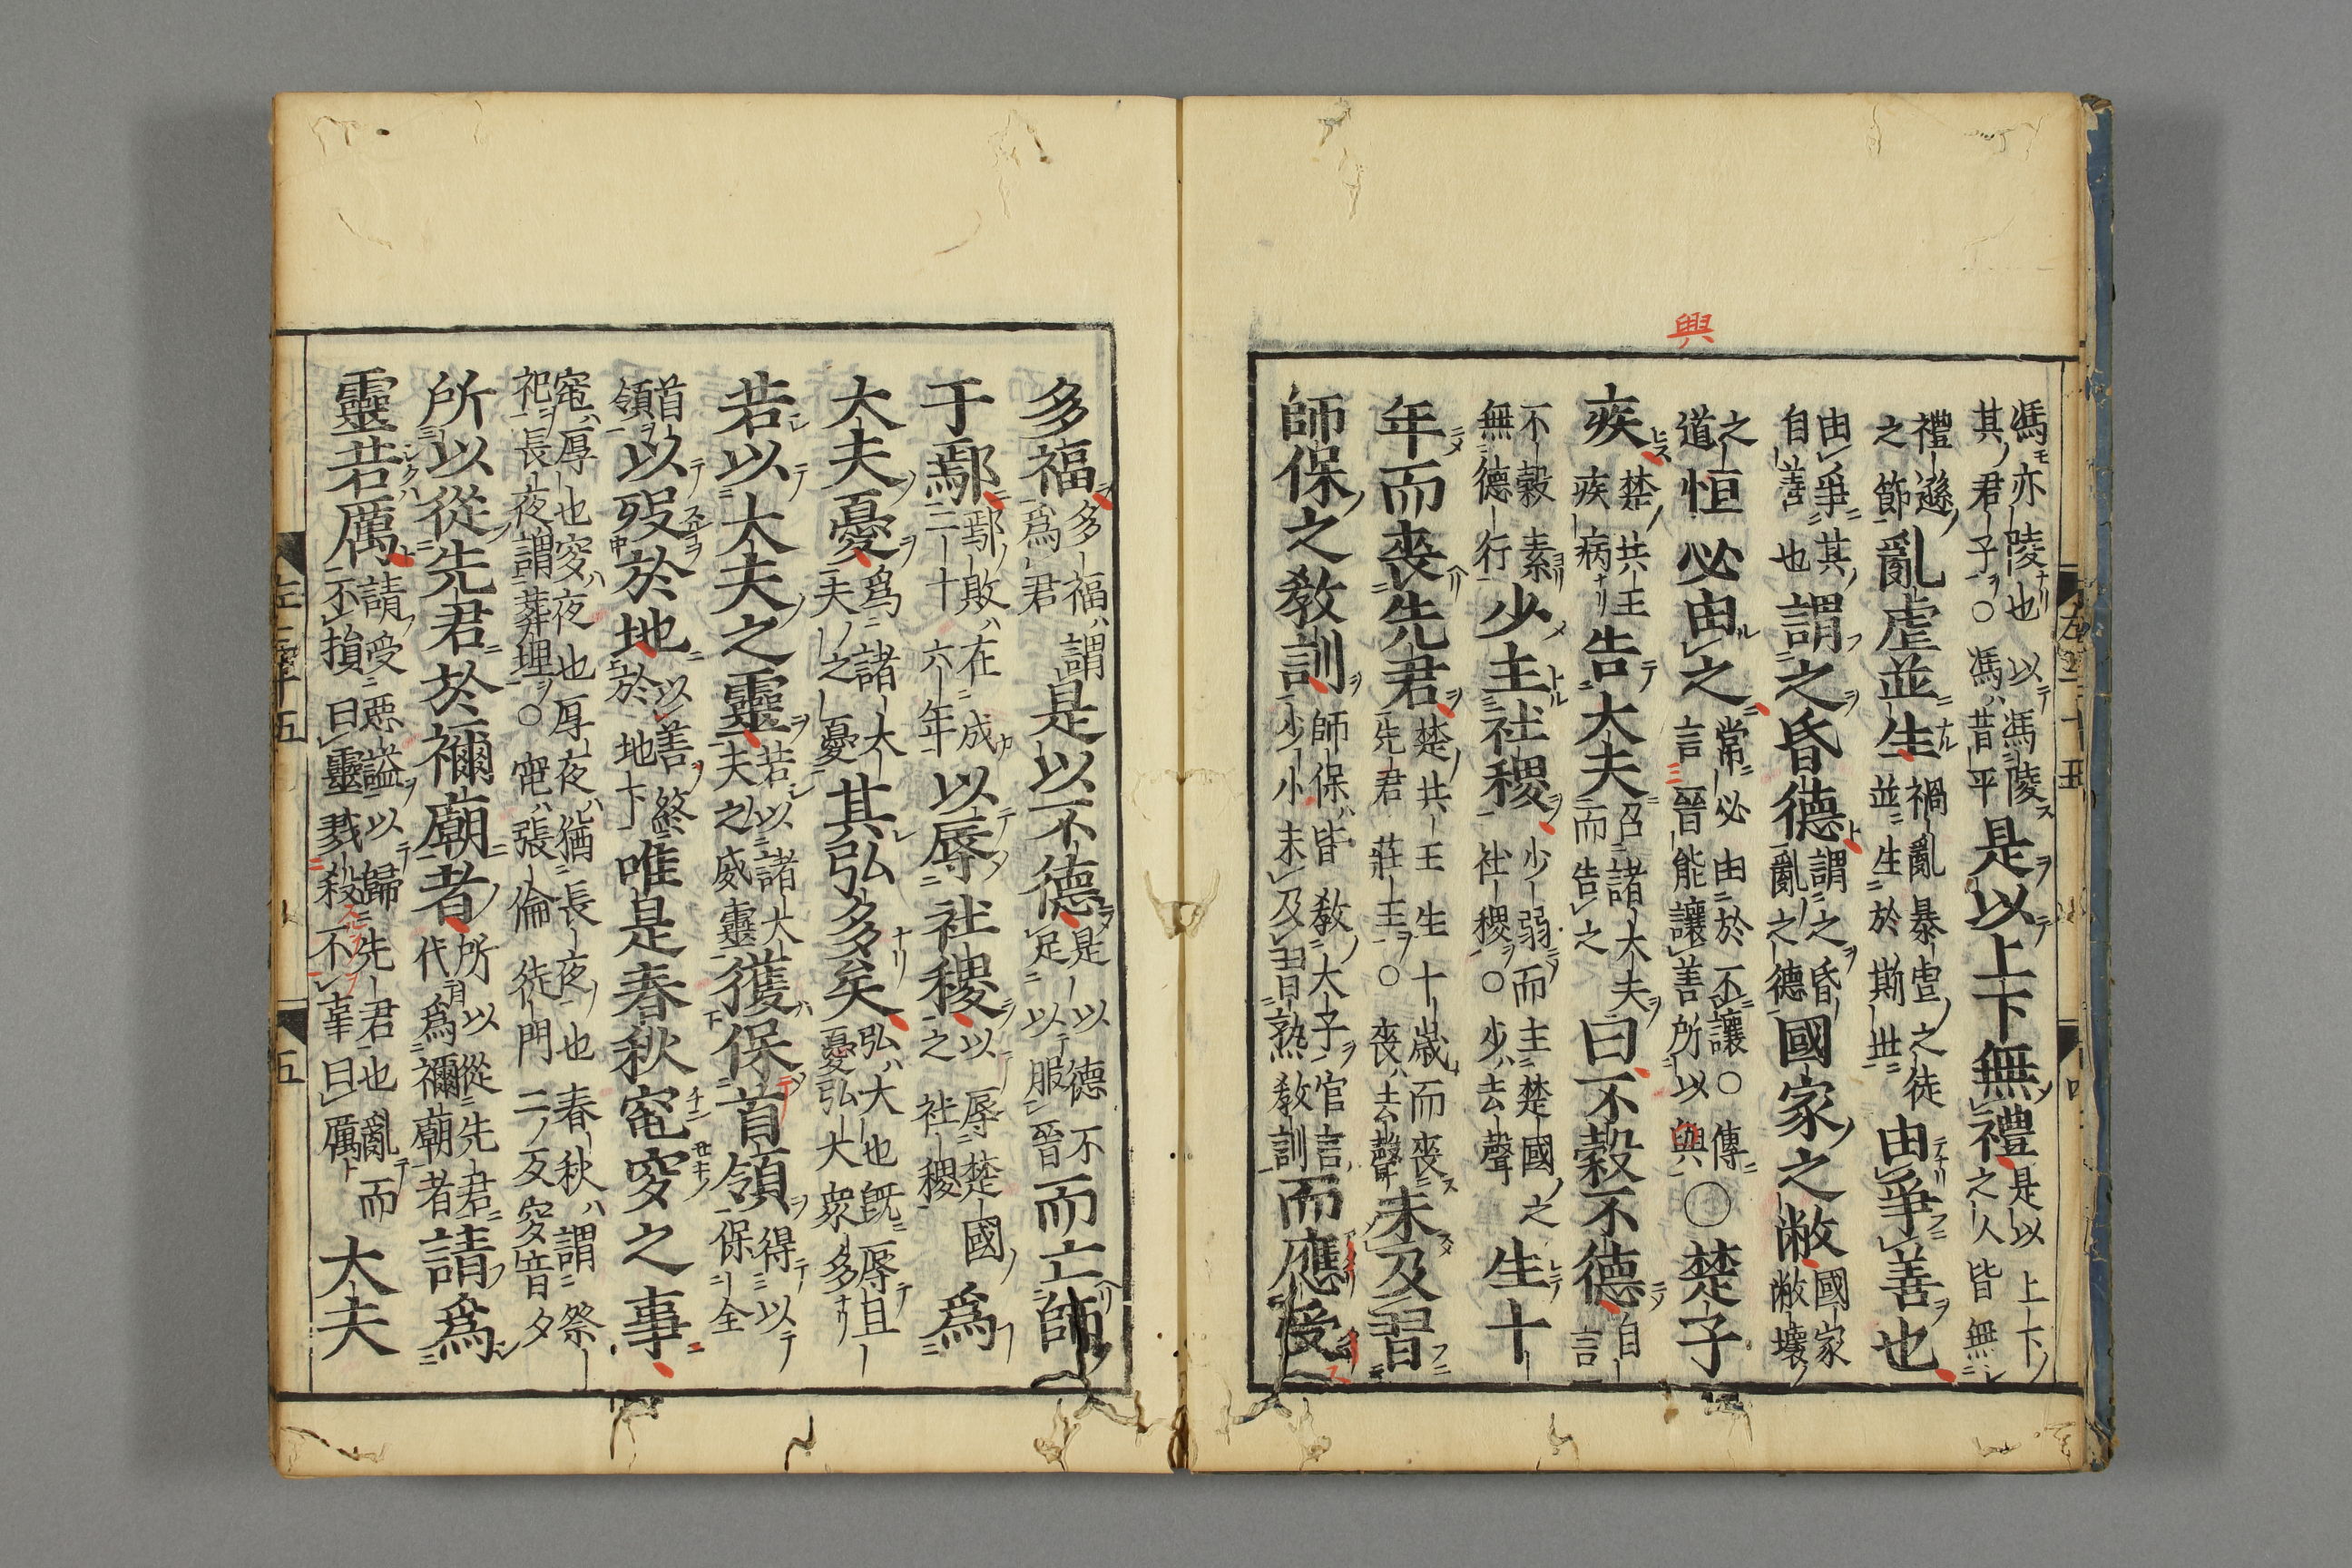 興
馮亦陵也以馮陵
其君子○馮昔平是以上下無禮是以上下
之人皆無
禮遜
之節亂虐並生禍亂暴虐之徒
並生於斯世由爭善也
由爭其
自善也謂之昏德謂之昏
亂之德國家之敝國家
敝壞
之
道恒必由之常必由於不讓○傳
言晉能讓善所以與○楚子
疾楚共王
疾病告大夫召諸大夫
而告之曰不穀不德自
言
不穀素
無德行少主社稷少弱而主楚國之
社稷○少去聲生十
年而喪先君楚共王生十歲而喪
先君莊王○喪去聲未及習
師保之教訓師保皆教大子官言
少小未及習熟教訓而應受
多福多福謂
為君是以不德是以德不
足以服晉而亡師
于鄢鄢敗在成
十六年以辱社稷以辱楚國
之社稷為
大夫憂為諸大
夫之憂其弘多矣弘大也既辱且
憂弘大衆多
若以大夫之靈若以諸大
夫之威靈獲保首領得以
保全
首
領以歿於地以善終
於地下唯是春秋窀穸之事
窀厚也穸夜也厚夜猶長夜也春秋謂祭
祀長夜謂葬埋○窀張倫徒門二反穸音夕
所以從先君於禰廟者所以從先君
代為禰廟者請為
靈若厲請受惡謚以歸先君也亂而
不損曰靈戮殺不辜曰厲大夫
五